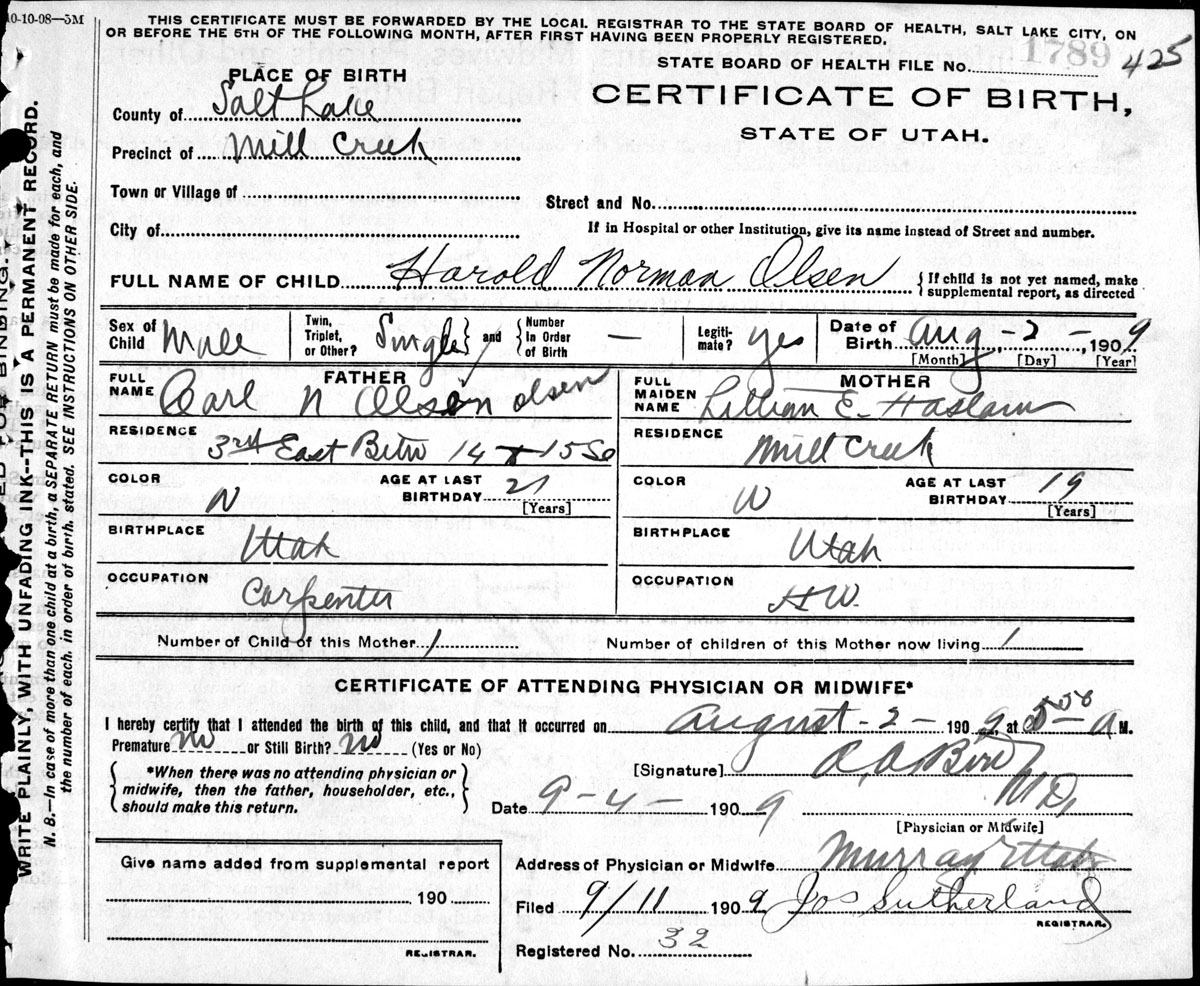 10-10-08—5M
THIS CERTIFICATE MUST BE FORWARDED BY THE LOCAL REGISTRAR TO THE STATE BOARD OF HEALTH, SALT LAKE CITY, ON
OR BEFORE THE 5TH OF THE FOLLOWING MONTH, AFTER FIRST HAVING BEEN PROPERLY REGISTERED.
STATE BOARD OF HEALTH FILE No. 1789 425
PLACE OF BIRTH
CERTIFICATE OF BIRTH,
STATE OF UTAH.
County of Salt Lake
Precinct of Mill Creek
Town or Village of
Street and No.
City of
If in Hospital or other Institution, give its name instead of Street and number.
FULL NAME OF CHILD Harold Norman Olsen { If child is not yet named, make
supplemental report, as directed
Sex of Child Male
Twin, Triplet, or Other? Single } and { Number In Order of Birth —
Legiti-mate? yes
Date of Birth Aug - 2 - 1909
[Month] [Day] [Year]
FATHER
FULL NAME Carl N Olsen Olsen
RESIDENCE 3rd East Betw 14 & 15 So
COLOR W AGE AT LAST BIRTHDAY 21 [Years]
BIRTHPLACE Utah
OCCUPATION Carpenter
MOTHER
FULL MAIDEN NAME Lillian E. Haslam
RESIDENCE Mill Creek
COLOR W AGE AT LAST BIRTHDAY 19 [Years]
BIRTHPLACE Utah
OCCUPATION H.W.
Number of Child of this Mother 1 Number of children of this Mother now living 1
CERTIFICATE OF ATTENDING PHYSICIAN OR MIDWIFE*
I hereby certify that I attended the birth of this child, and that it occurred on August - 2 - 1909, at 5 50 A M.
Premature no or Still Birth? no (Yes or No)
{ *When there was no attending physician or
midwife, then the father, householder, etc.,
should make this return. }
[Signature] M.D.
Date 9 - 4 - 1909
[Physician or Midwife]
Give name added from supplemental report
190
REGISTRAR.
Address of Physician or Midwife Murray Utah
Filed 9/11 1909 Jos Sutherland
REGISTRAR.
Registered No. 32
WRITE PLAINLY, WITH UNFADING INK--THIS IS A PERMANENT RECORD.
N. B.—In case of more than one child at a birth, a SEPARATE RETURN must be made for each, and
the number of each, in order of birth, stated. SEE INSTRUCTIONS ON OTHER SIDE.